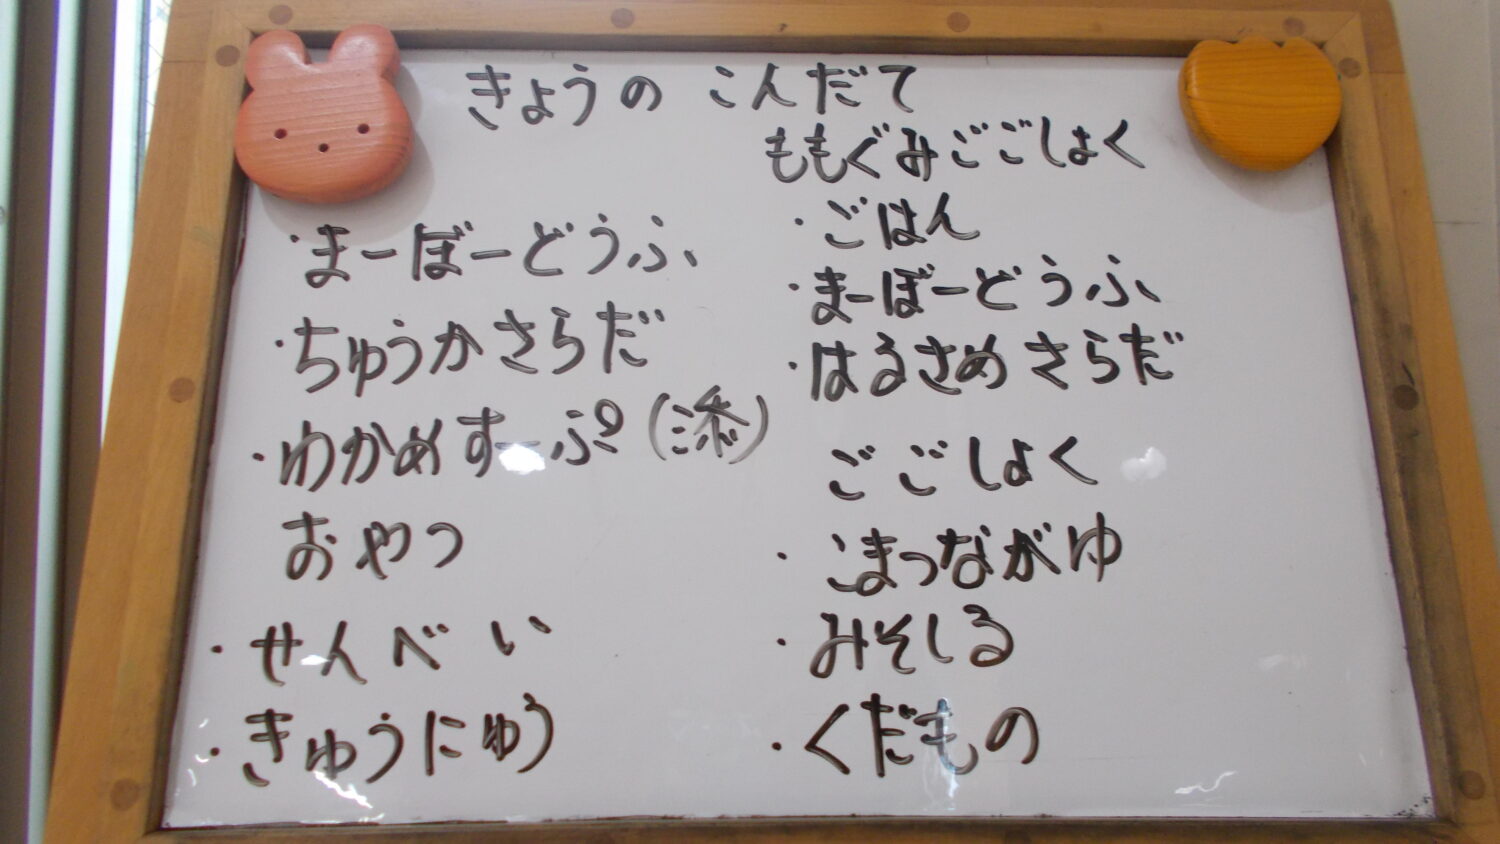 きょうの こんだて
・まーぼーどうふ
・ちゅうかさらだ
・わかめすーぷ(添)
おやつ
・せんべい
・ぎゅうにゅう
ももぐみごごしょく
・ごはん
・まーぼーどうふ
・はるさめさらだ
ごごしょく
・こまつながゆ
・みそしる
・くだもの